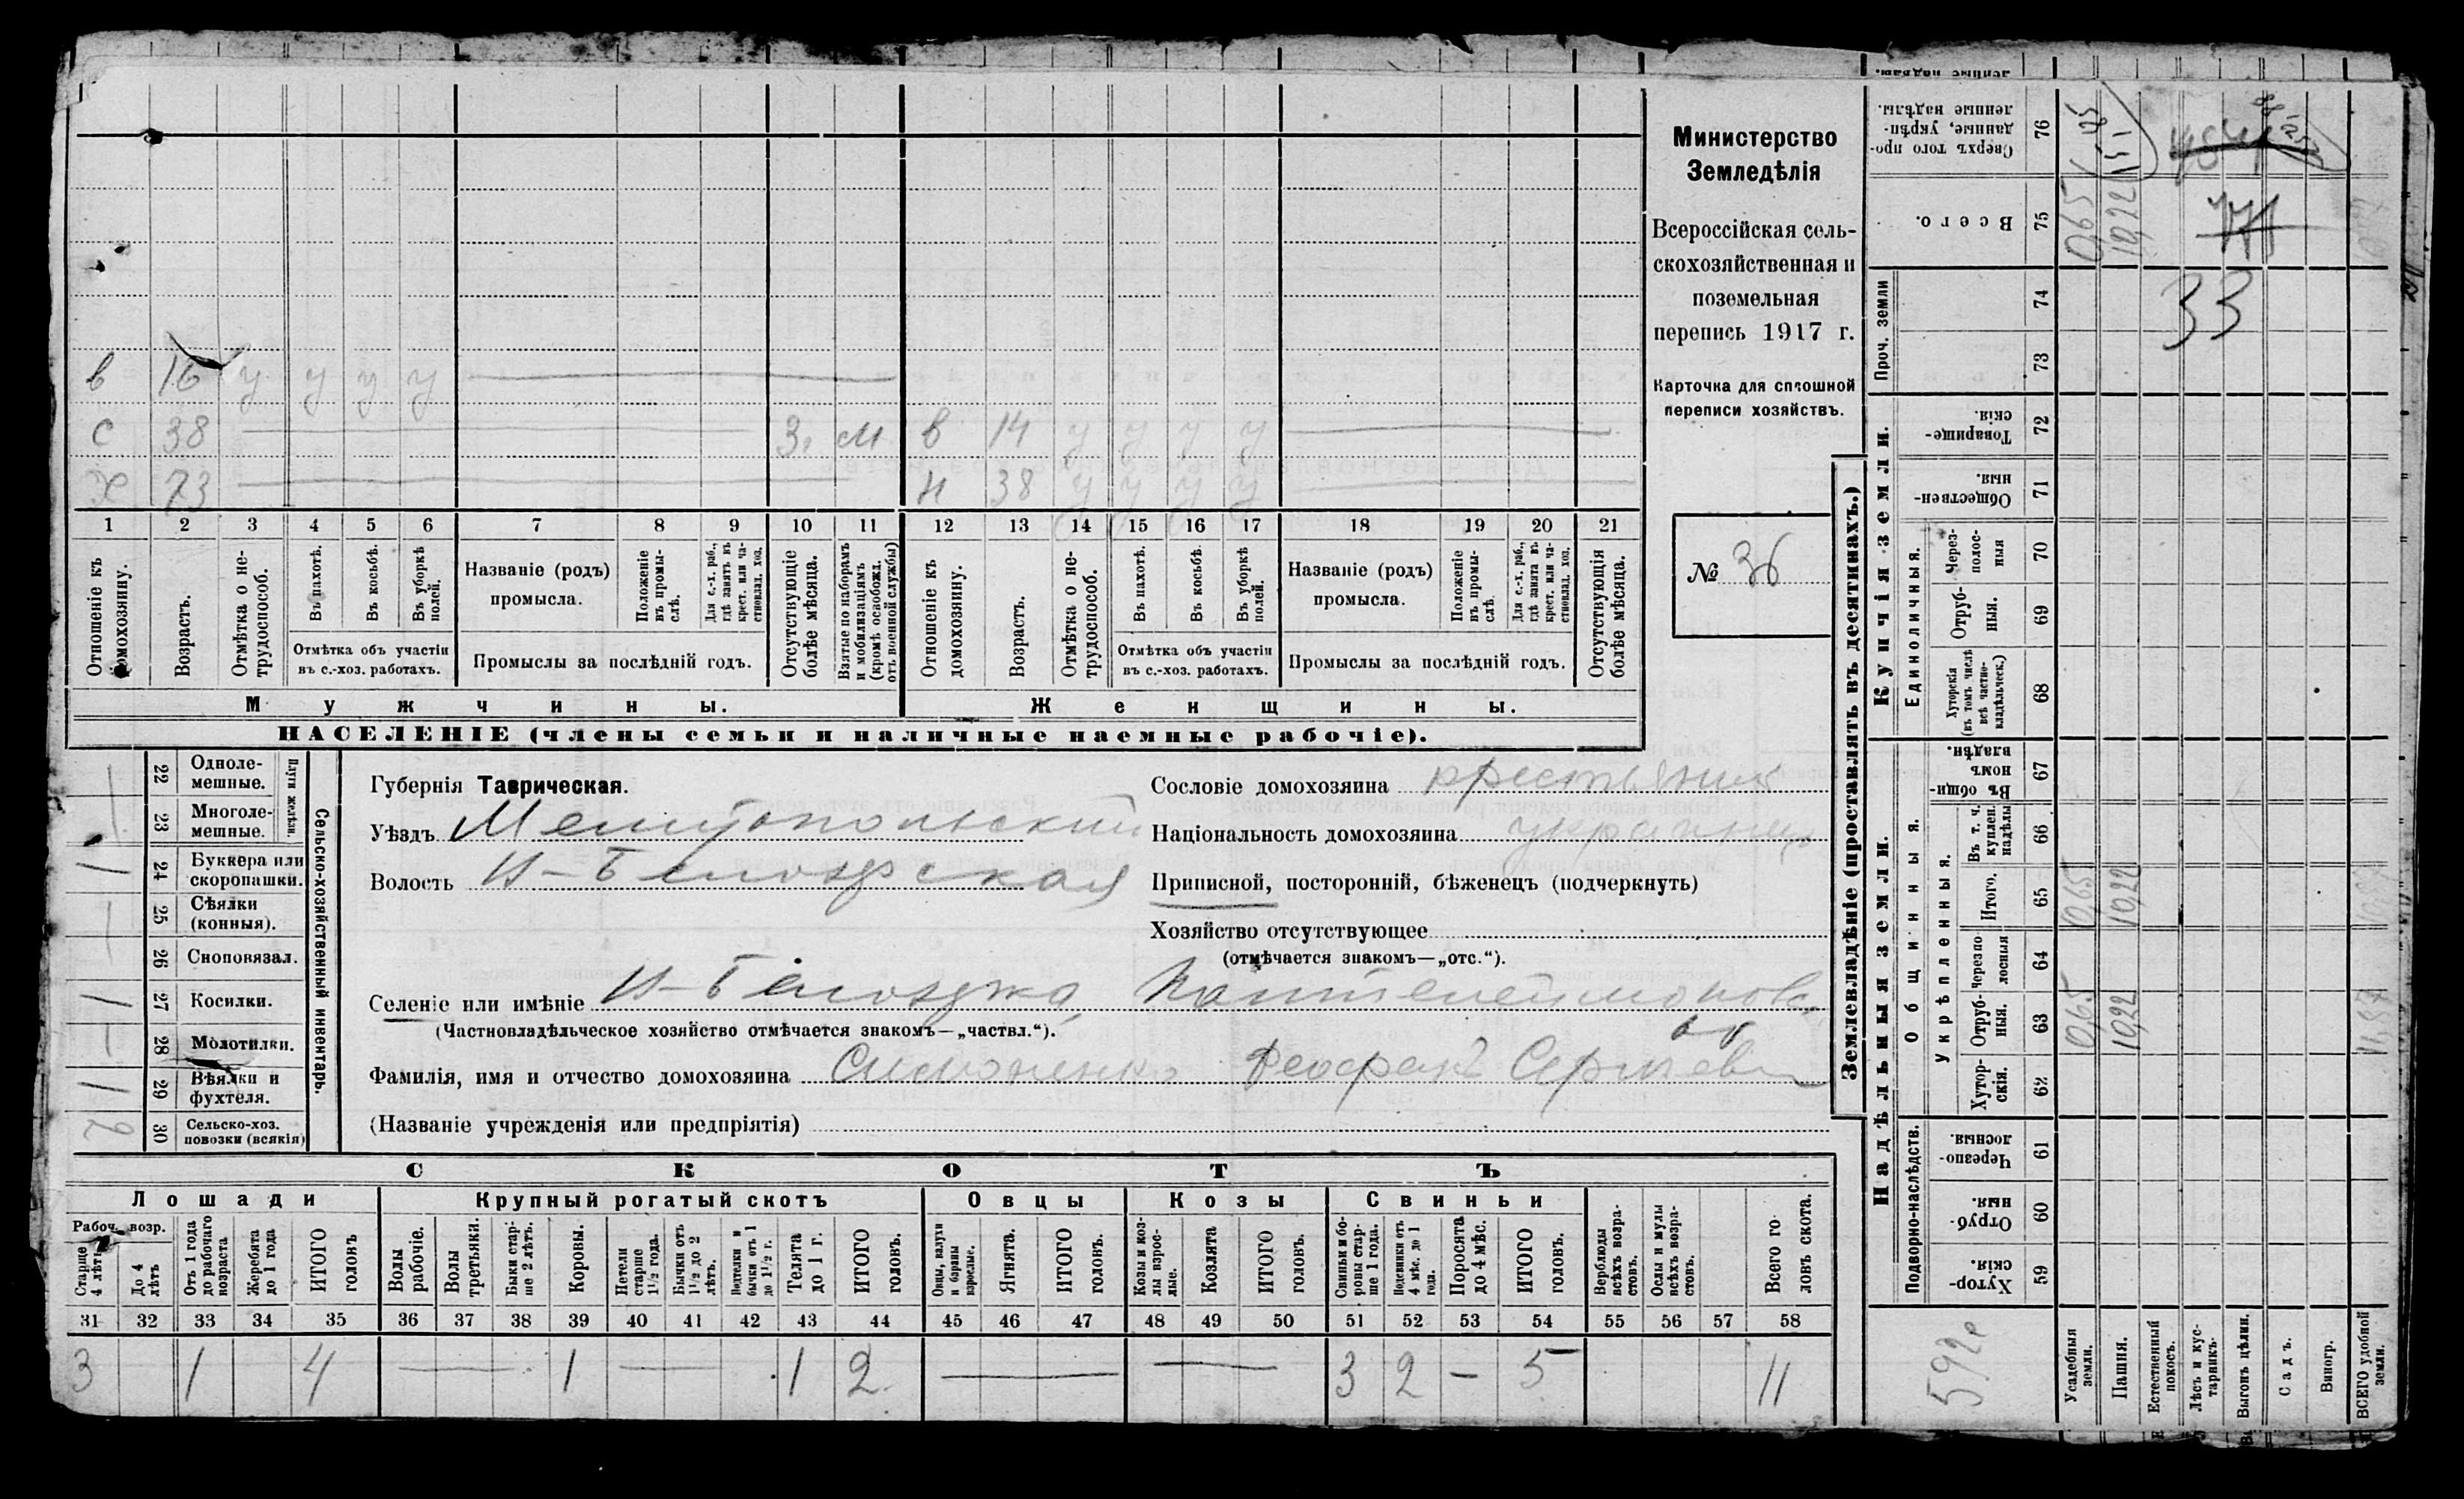 Министерство
Земледѣлія
Всероссійская сель-
скохозяйственная и
поземельная
перепись 1917 г.
Карточка для сплошной
переписи хозяйствъ.
№ 36
в 16 у у у у
с 38 З. М в 14 у у у у
Х 73 н 38 у у у у
1 2 3 4 5 6 7 8 9 10 11 12 13 14 15 16 17 18 19 20 21
Отношеніе къ домохозяину.
Возрастъ.
Отмѣтка о не-трудоспособ.
Въ пахотѣ.
Въ косьбѣ.
Въ уборкѣ полей.
Отмѣтка объ участіи
въ с.-хоз. работахъ.
Названіе (родъ)
промысла.
Положеніе въ промы-слѣ.
Для с.-х. раб., гдѣ занятъ въ крест. или ча-стновлад. хоз.
Промыслы за послѣдній годъ.
Отсутствующіе болѣе мѣсяца.
Взятые по наборамъ и мобилизаціямъ (кромѣ освобожд. отъ военной службы)
Отношеніе къ домохозяину.
Возрастъ.
Отмѣтка о не-трудоспособ.
Въ пахотѣ.
Въ косьбѣ.
Въ уборкѣ полей.
Отмѣтка объ участіи
въ с.-хоз. работахъ.
Названіе (родъ)
промысла.
Положеніе въ промы-слѣ.
Для с.-х. раб., гдѣ занята въ крест. или ча-стновлад. хоз.
Промыслы за послѣдній годъ.
Отсутствующія болѣе мѣсяца.
Мужчины.
Женщины.
НАСЕЛЕНІЕ (члены семьи и наличные наемные рабочіе).
Сельско-хозяйственный инвентарь.
Плуги желѣз.
22 Одноле-мешные.
23 Многоле-мешные.
1 24 Буккера или скоропашки.
25 Сѣялки (конныя).
26 Сноповязал.
1 27 Косилки.
28 Молотилки.
1 29 Вѣялки и фухтеля.
2 30 Сельско-хоз. повозки (всякія)
Губернія Таврическая.
Уѣздъ Мелитопольский
Волость Н-Белозерская
Селеніе или имѣніе Н-Белозерка, Пантелеймоновск
(Частновладѣльческое хозяйство отмѣчается знакомъ—„частвл.“).
Фамилія, имя и отчество домохозяина Симоненко Феофанъ Сергѣев
(Названіе учрежденія или предпріятія)
Сословіе домохозяина крестьянин
Національность домохозяина украинец
Приписной, посторонній, бѣженецъ (подчеркнуть)
Хозяйство отсутствующее
(отмѣчается знакомъ—„отс.“).
СКОТЪ
Лошади
Крупный рогатый скотъ
Овцы
Козы
Свиньи
Рабоч. возр.
Старше 4 лѣтъ
До 4 лѣтъ
Отъ 1 года до рабочаго возраста
Жеребята до 1 года
ИТОГО головъ
Волы рабочіе.
Волы третьяки.
Быки стар-ше 2 лѣтъ.
Коровы.
Нетели старше 1½ года.
Бычки отъ 1½ до 2 лѣтъ.
Подтелки и бычки отъ 1 до 1½ г.
Телята до 1 г.
ИТОГО головъ.
Овцы, валухи и бараны взрослые.
Ягнята.
ИТОГО головъ.
Козы и коз-лы взрос-лые.
Козлята
ИТОГО головъ.
Свиньи и бо-ровы стар-ше 1 года.
Подсвинки отъ 4 мѣс. до 1 года.
Поросята до 4 мѣс.
ИТОГО головъ.
Верблюды всѣхъ возра-стовъ.
Ослы и мулы всѣхъ возра-стовъ.
Всего го-ловъ скота.
31 32 33 34 35 36 37 38 39 40 41 42 43 44 45 46 47 48 49 50 51 52 53 54 55 56 57 58
3 1 4 — 1 — 1 2 — — 3 2 — 5 11
Землевладѣніе (проставлять въ десятинахъ.)
Надѣльныя земли.
Купчія земли.
Проч. земли
Подворно-наслѣдств.
Общинныя.
Укрѣпленныя.
Единоличныя.
Хутор-скія. 59
Отруб-ныя. 60
Черезпо-лосныя. 61
Хутор-скія. 62
Отруб-ныя. 63
Черезпо лосныя 64
Итого. 65
Въ т. ч. куплен. надѣлы 66
Въ общи-номъ владѣн. 67
Хуторскія (въ томъ числѣ всѣ частно-владѣльческ.) 68
Отруб-ныя. 69
Через-полос-ныя 70
Обществен-ныя. 71
Товарище-скія. 72
73
74
Всего. 75
Сверхъ того про-данные, укрѣп-ленные надѣлы. 76
Усадебныя земли.
Пашня.
Естественный покосъ.
Лѣсъ и кус-тарникъ.
Выгонъ цѣлин.
Садъ.
Виногр.
ВСЕГО удобной земли.
0,65 10,22
0,65 10,22
0,65 10,22
33
592